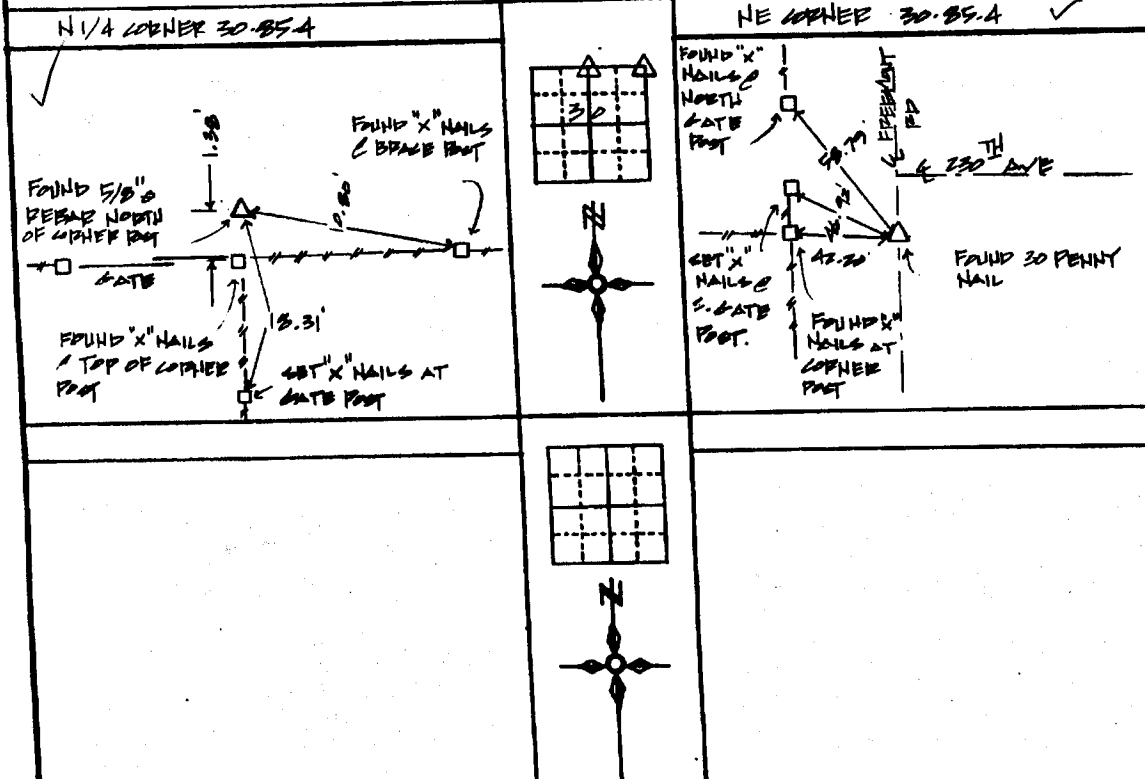 N 1/4 CORNER 30-85-4
1.38'
FOUND "X" NAILS
@ BRACE POST
FOUND 5/8"ø
REBAR NORTH
OF CORNER POST
GATE
FOUND "X" NAILS
TOP OF CORNER
POST
18.31'
SET "X" NAILS AT
GATE POST
30
N
NE CORNER 30-85-4
FOUND "X"
NAILS @
NORTH
GATE
POST
58.79'
FREEMONT
RD
℄ 230TH AVE
42.20'
FOUND 30 PENNY
NAIL
SET "X"
NAILS @
S. GATE
POST.
FOUND "X"
NAILS AT
CORNER
POST
N